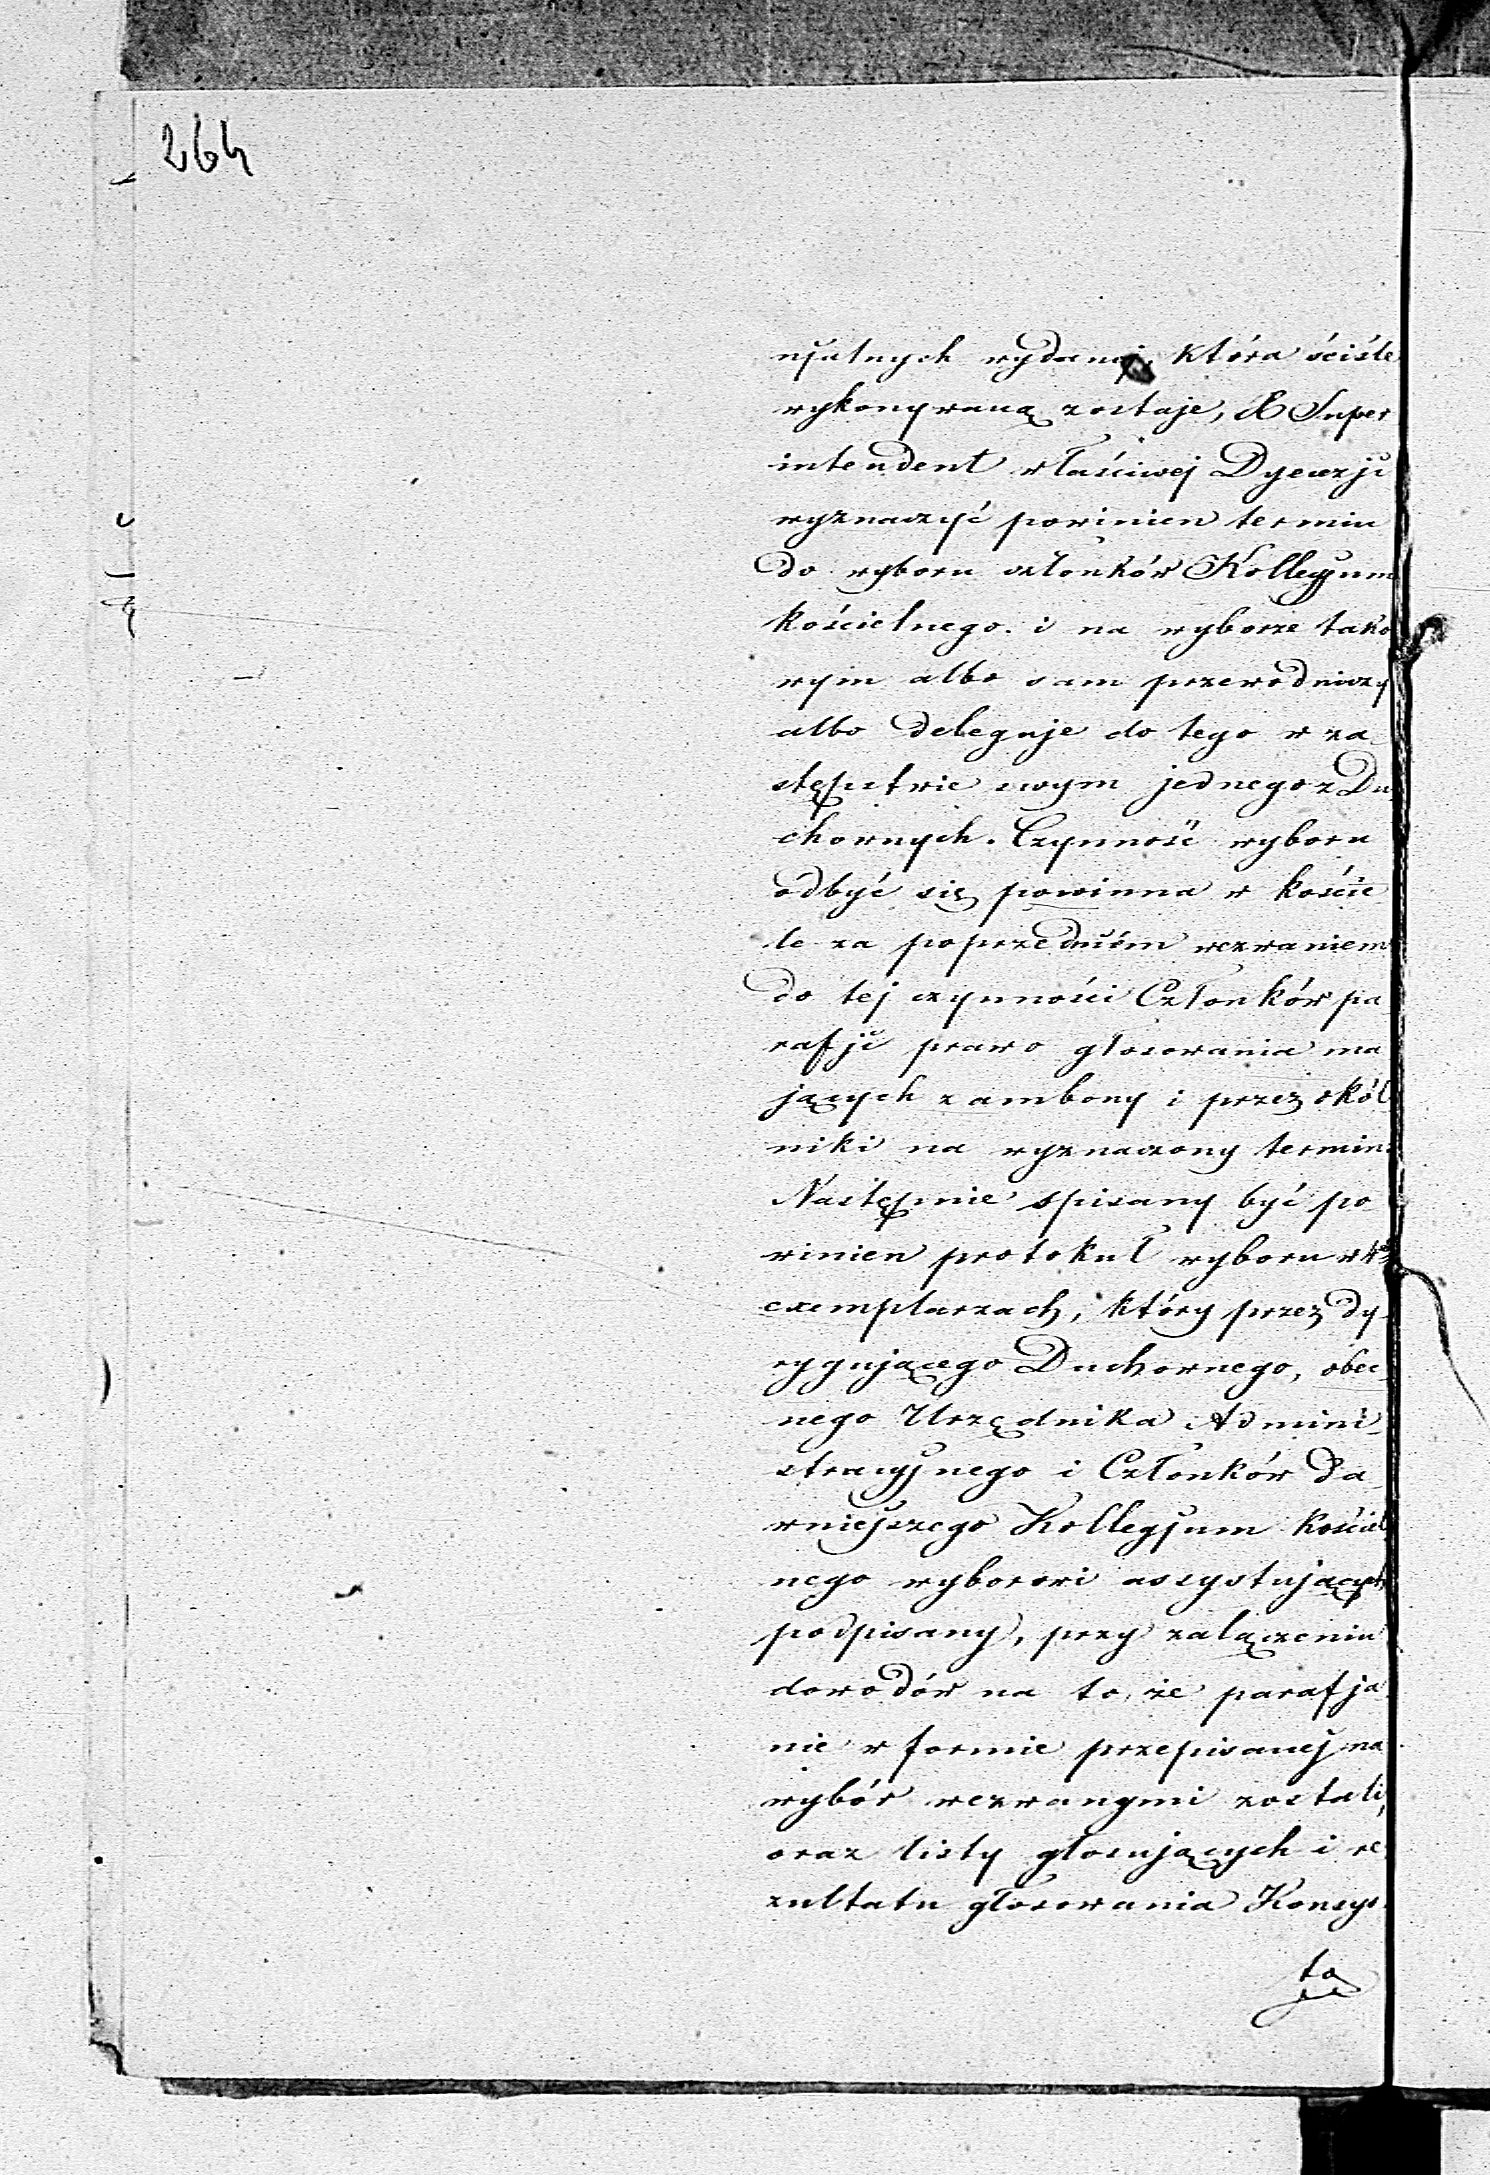 264
nijalnych wydanej, która ściśle
wykonywaną zostaje, X Super
intendent właściwej Dyecezji
wyznaczyć powinien termin
do wyboru członków Kollegjum
kościelnego. i na wyborze tako
wym albo sam przewodniczy
albo deleguje do tego w za
stępstwie swym jednego z Du
chownych. Czynność wyboru
odbyć się powinna w koście
le za poprzedniém wezwaniem
do tej czynności Członków pa
rafji prawo głosowania ma
jących z ambony i przez okól
niki na wyznaczony termin.
Następnie spisany być po
winien protokuł wyboru w
exemplarzach, który przez dy-
rygującego Duchownego, obec
nego Urzędnika Admini-
stracyjnego i Członków da
wniejszego Kollegjum Kościel
nego wyborowi assystujących
podpisany, przy załączeniu
dowodów na to, że parafja
nie w formie przepisanej na
wybór wezwanymi zostali,
oraz listy głosujących i re
zultatu głosowania Konsys